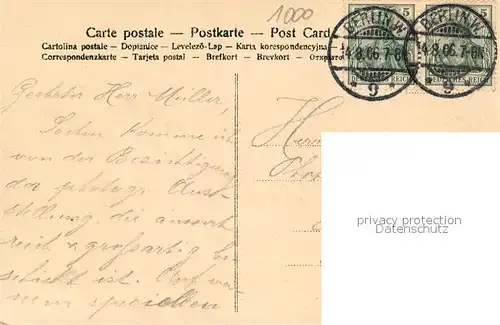 1000
Carte postale — Postkarte — Post Card
Cartolina postale — Dopisnice — Levelező-Lap — Karta korespondencyjna
Correspondenzkarte — Tarjeta postal — Brefkort — Brevkort —
5
BERLIN.W.
4.8.06.7-8N.
9
BERLIN.W.
4.8.06.7-8N.
9
DEUTSCHES REICH
Geehrter Herr Müller,
Soeben komme ich
von der Besichtigung
der photogr. Aus-
stellung, die
reich u. großartig be-
schickt ist. Auf
speciellen
Herrn
privacy protection
Datenschutz